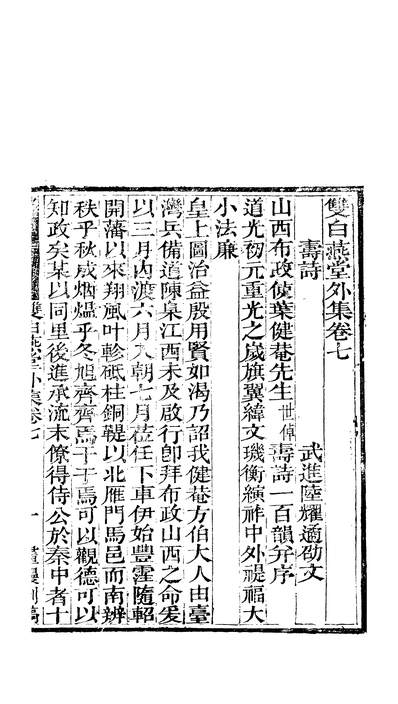 雙白燕堂外集卷七
武進陸耀遹劭文
壽詩
山西布政使葉健菴先生世倬壽詩一百韻并序
道光初元重光之歲旗翼緯文璣衡縯祚中外禔福大
小法廉
皇上圖治益殷用賢如渴乃詔我健菴方伯大人由臺
灣兵備道陳臬江西未及啟行卽拜布政山西之命爰
以三月內渡六月入朝七月莅任下車伊始豐霔隨軺
開藩以來翔風叶軫砥柱銅鞮以北雁門馬邑而南辨
秩乎秋咸烟熅乎冬旭齊齊焉于于焉可以觀德可以
知政矣某以同里後進承流末僚得侍公於秦中者十
雙白燕堂外集卷七
一